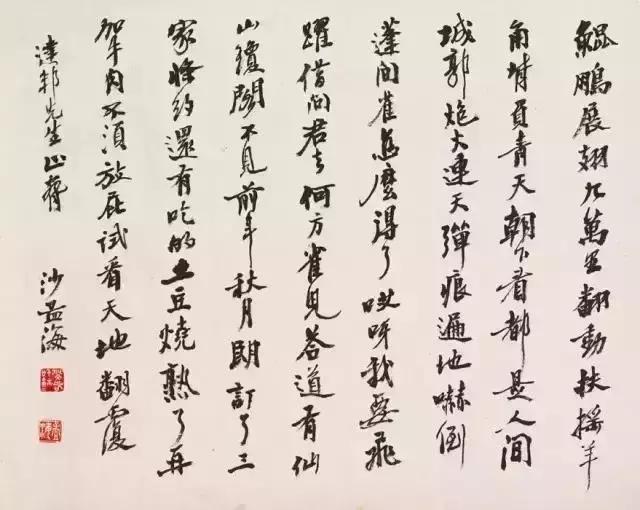 鯤鵬展翅九萬里翻動扶搖羊
角背負青天朝下看都是人間
城郭炮火連天彈痕遍地嚇倒
蓬間雀怎麼得了哎呀我要飛
躍借問君去何方雀兒答道有仙
山瓊閣不見前年秋月朗訂了三
家條約還有吃的土豆燒熟了再
加牛肉不須放屁試看天地翻覆
邦先生正 沙孟海